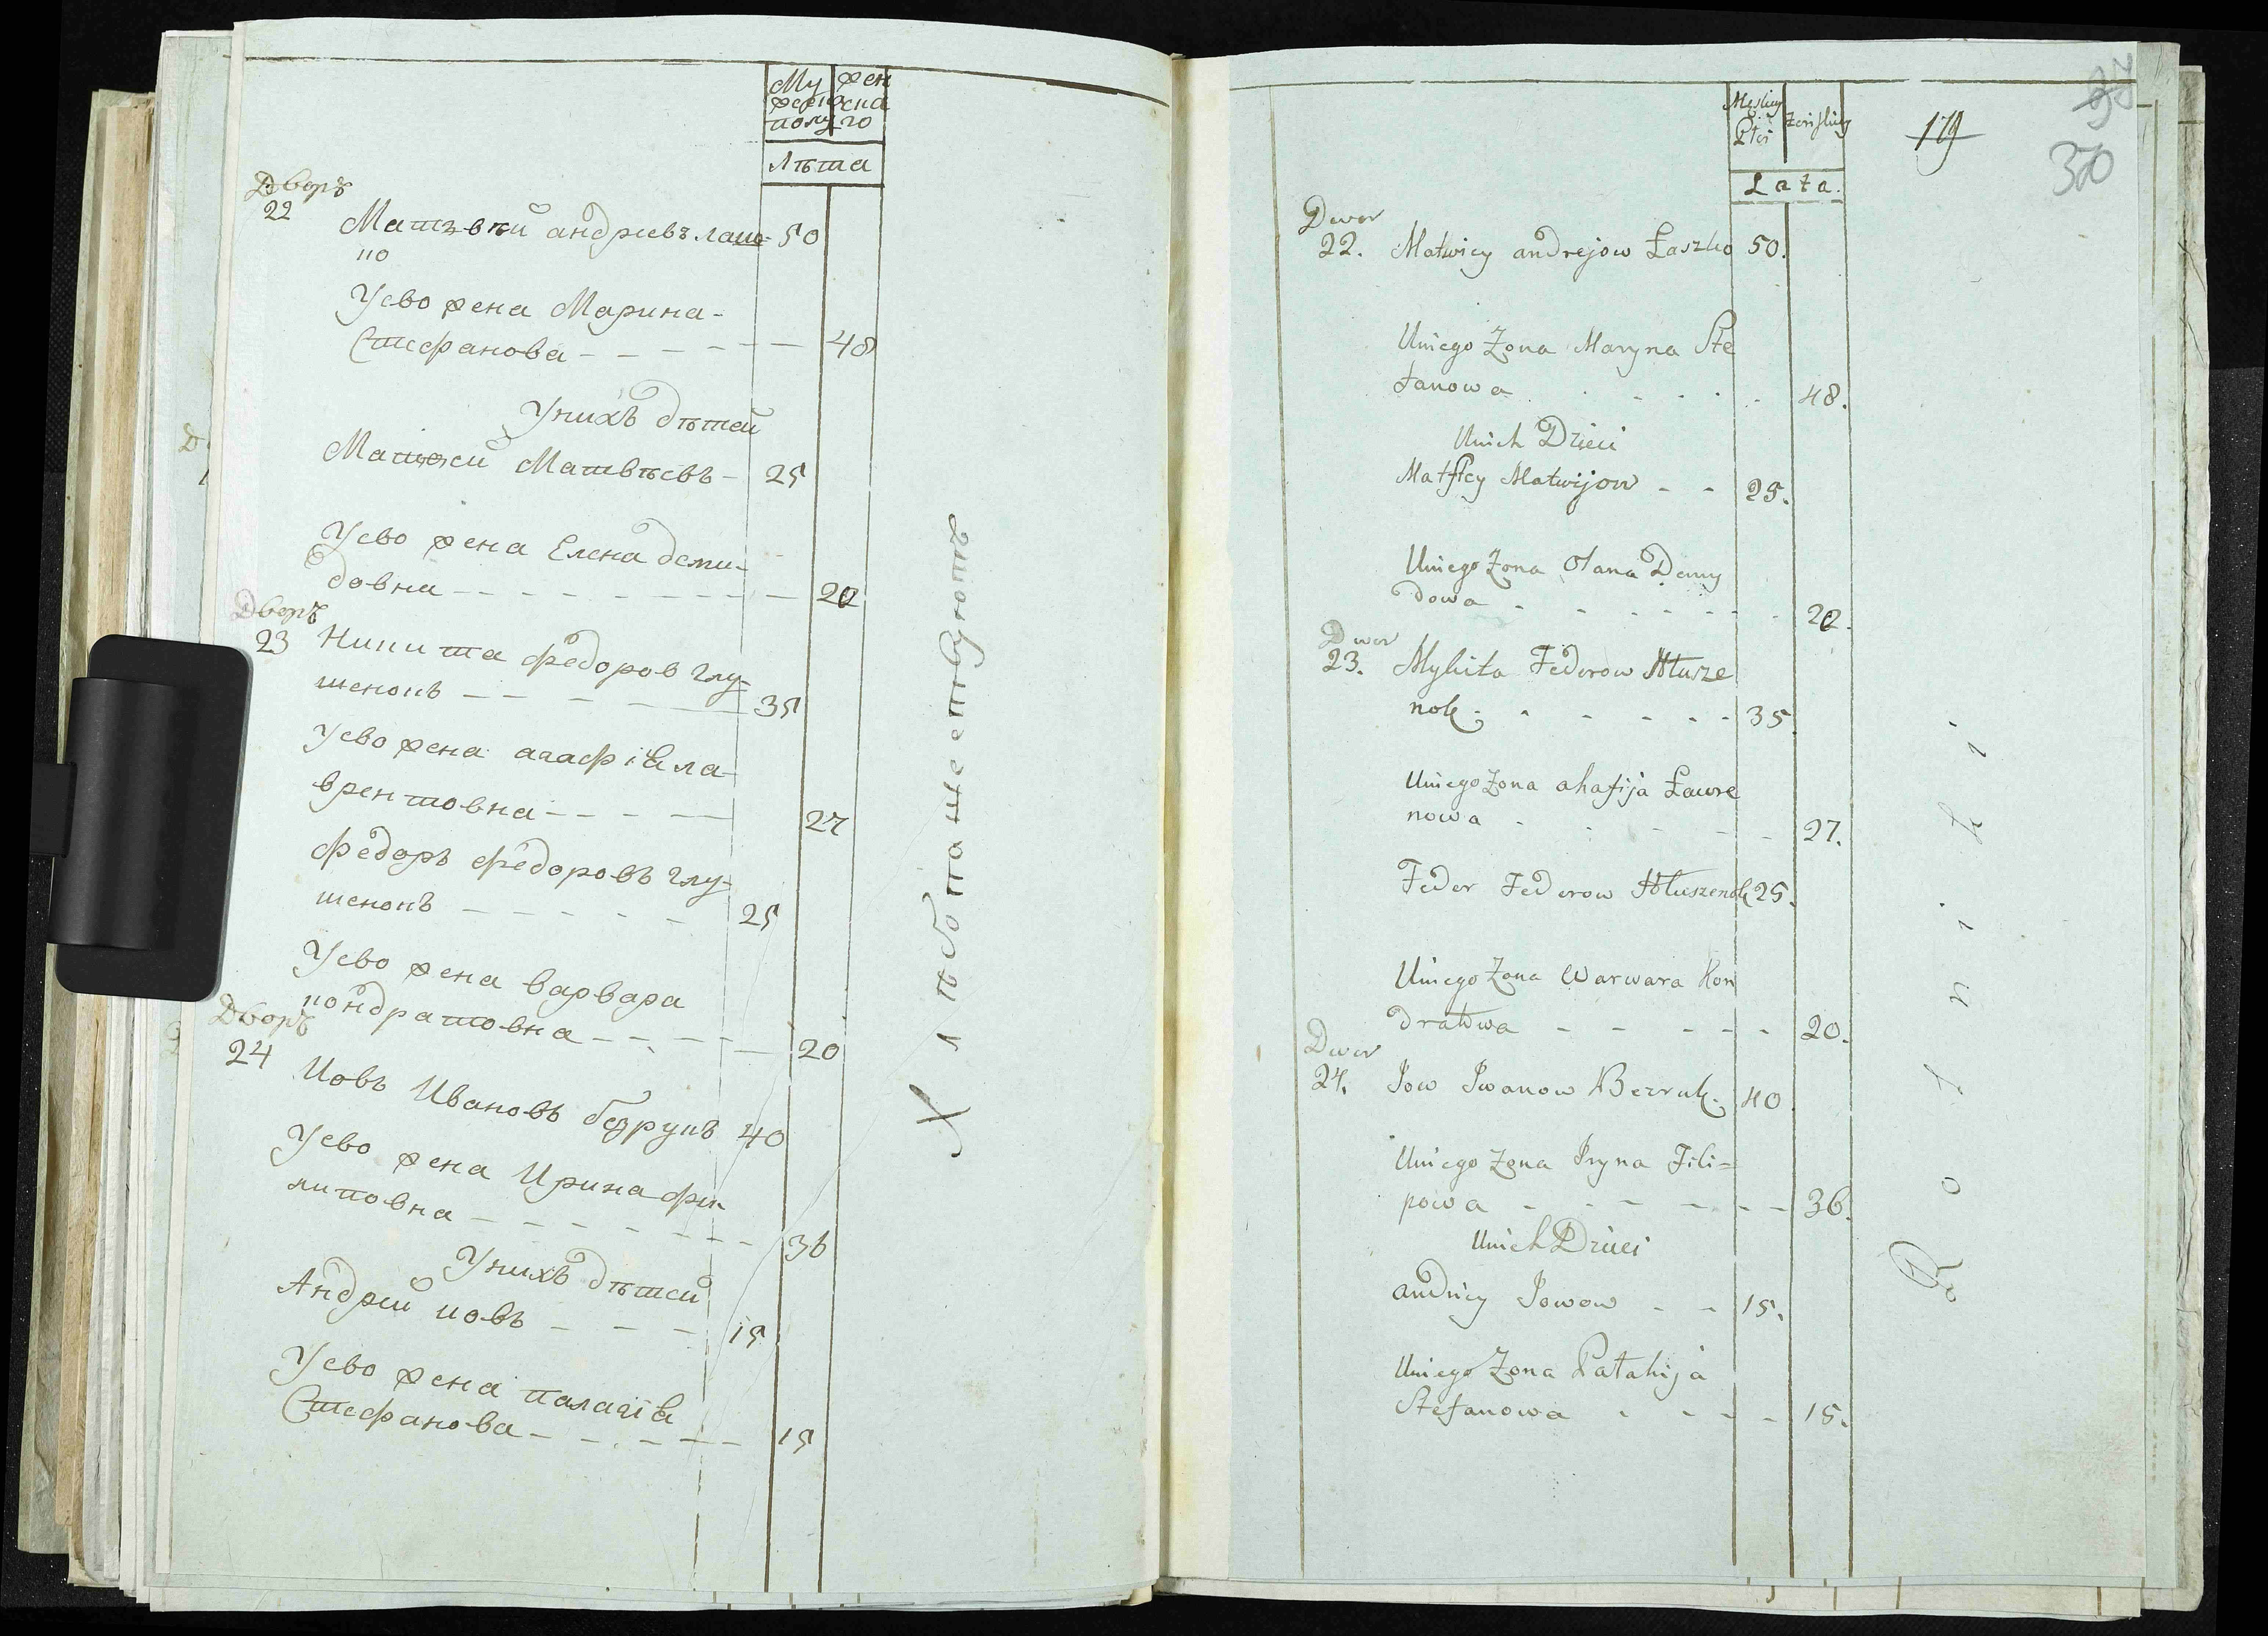 Му жен
жеск ска
полу го
Лѣта
Дворъ
22
Матвѣй андріевъ лаш= 50
ко
Уево жена Марина-
Стефанова - - - - - - 48
Унихъ дѣтей
Матѳей Матвѣевъ - 25
Уево жена Елена деми-
довна - - - - - - - - - 22
Дворъ
23 Никита федоров глу-
шенокъ - - - - - 35
Уево жена агафія ла-
врентовна - - - - - 27
федоръ федоровъ глу-
шенокъ - - - - - - 25
Уево жена варвара
кондратовна - - - - - 20
Дворъ
24 Иовъ Ивановъ безрукъ 40
Уево жена Ирина фи-
липовна - - - - - - - 36
Унихъ дѣтей
Андрей иовъ - - - - 15
Уево жена палагія
Стефанова - - - - - - 15
Хлѣбопашествуютъ
Męskiey Żeńskiey
Płci
Lata.
179
370
Dwor
22. Matwiey andrejow Łaszko 50.
Uniego Żona Maryna Ste
fanowa . . . - . . . 48.
Unich Dzieci
Matfiey Matwijow - - 25.
Uniego Żona Olana Demy
dowa - - - - - - - 22.
Dwor
23. Mykita Fedorow Hłusze
nok. - - - - - 35.
Uniego Żona ahafija Ławre
nowa - - - - - 27.
Feder Fedorow Hłuszenok 25.
Uniego Żona Warwara Kon
dratowa - - - - - 20.
Dwor
24. Jow Iwanow Bezruk. 40.
Uniego Żona Iryna Fili=
powa - - - - - - 36.
Unich Dzieci
andriey Jowow - - 15.
Uniego Żona Pałahija
Stefanowa - - - - 15.
Rolniki